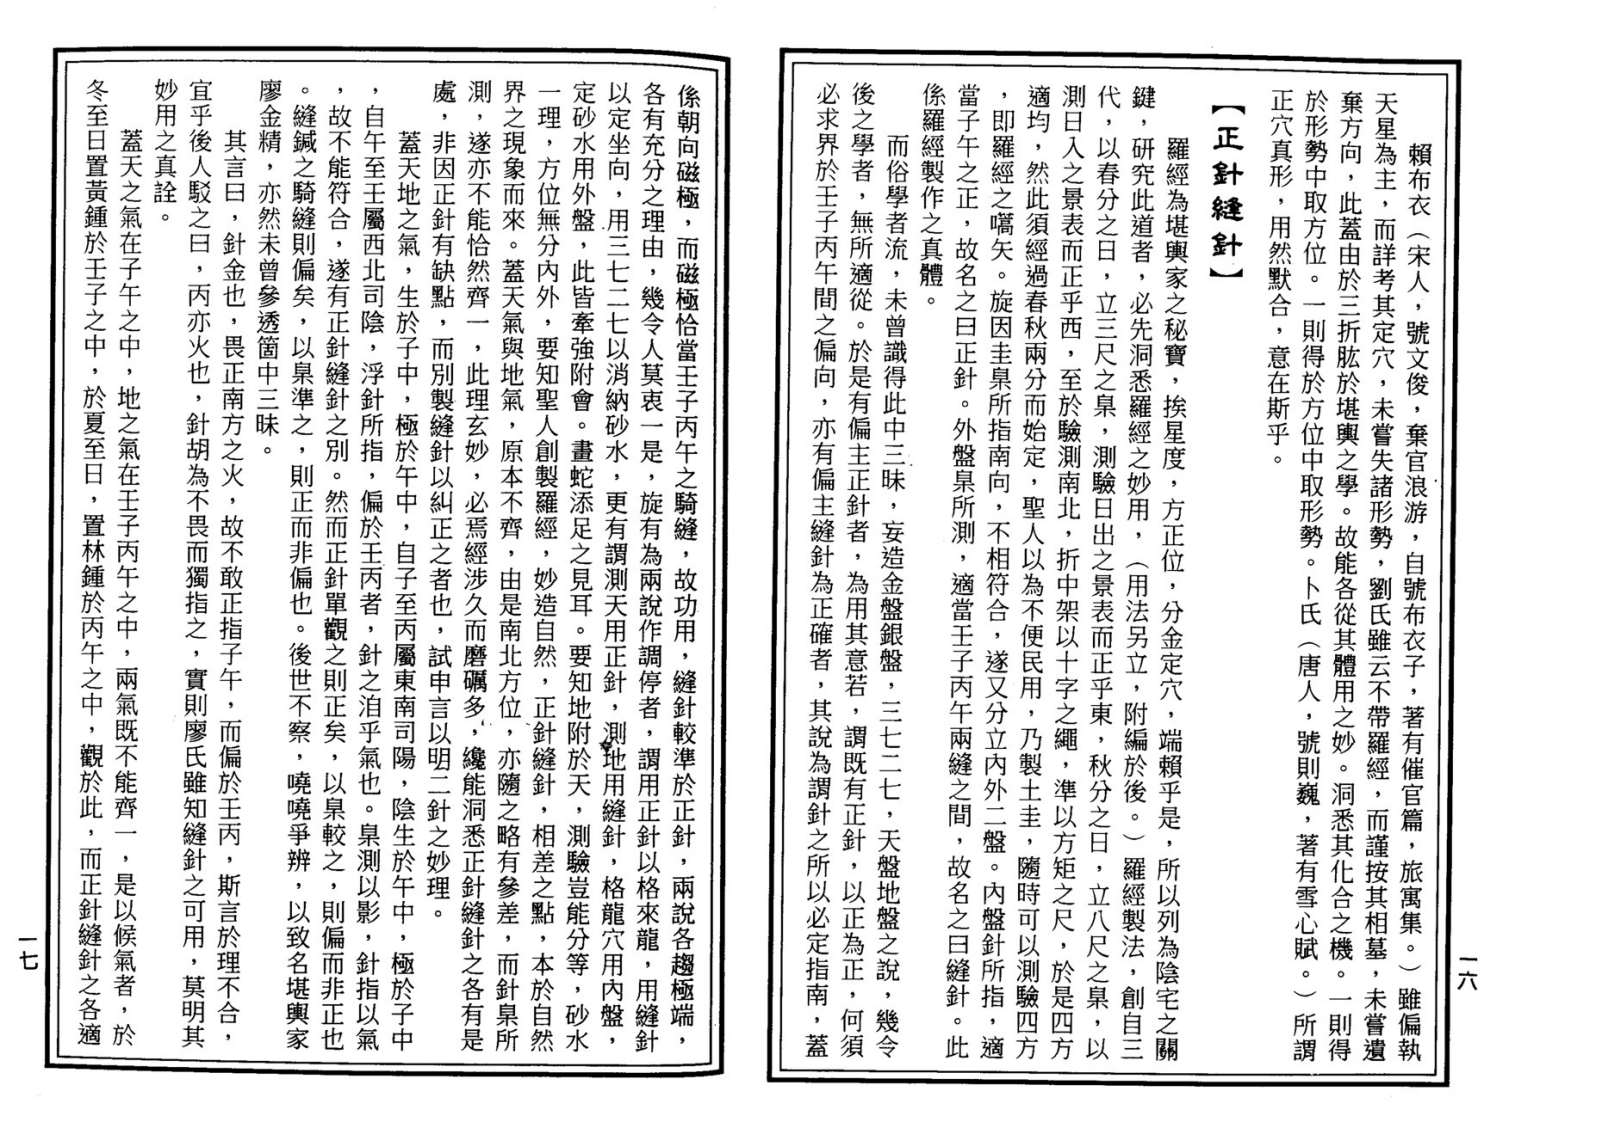 賴布衣（宋人，號文俊，棄官浪游，自號布衣子，著有催官篇，旅寓集。）雖偏執
天星為主，而詳考其定穴，未嘗失諸形勢，劉氏雖云不帶羅經，而謹按其相墓，未嘗遺
棄方向，此蓋由於三折肱於堪輿之學。故能各從其體用之妙。洞悉其化合之機。一則得
於形勢中取方位。一則得於方位中取形勢。卜氏（唐人，號則巍，著有雪心賦。）所謂
正穴真形，用然默合，意在斯乎。
【正針縫針】
羅經為堪輿家之秘寶，挨星度，方正位，分金定穴，端賴乎是，所以列為陰宅之關
鍵，研究此道者，必先洞悉羅經之妙用，（用法另立，附編於後。）羅經製法，創自三
代，以春分之日，立三尺之臬，測驗日出之景表而正乎東，秋分之日，立八尺之臬，以
測日入之景表而正乎西，至於驗測南北，折中架以十字之繩，準以方矩之尺，於是四方
適均，然此須經過春秋兩分而始定，聖人以為不便民用，乃製土圭，隨時可以測驗四方
，即羅經之嚆矢。旋因圭臬所指南向，不相符合，遂又分立內外二盤。內盤針所指，適
當子午之正，故名之曰正針。外盤臬所測，適當壬子丙午兩縫之間，故名之曰縫針。此
係羅經製作之真體。
而俗學者流，未曾識得此中三昧，妄造金盤銀盤，三七二七，天盤地盤之說，幾令
後之學者，無所適從。於是有偏主正針者，為用其意若，謂既有正針，以正為正，何須
必求界於壬子丙午間之偏向，亦有偏主縫針為正確者，其說為謂針之所以必定指南，蓋
一六
係朝向磁極，而磁極恰當壬子丙午之騎縫，故功用，縫針較準於正針，兩說各趨極端，
各有充分之理由，幾令人莫衷一是，旋有為兩說作調停者，謂用正針以格來龍，用縫針
以定坐向，用三七二七以消納砂水，更有謂測天用正針，測地用縫針，格龍穴用內盤，
定砂水用外盤，此皆牽強附會。畫蛇添足之見耳。要知地附於天，測驗豈能分等，砂水
一理，方位無分內外，要知聖人創製羅經，妙造自然，正針縫針，相差之點，本於自然
界之現象而來。蓋天氣與地氣，原本不齊，由是南北方位，亦隨之略有參差，而針臬所
測，遂亦不能恰然齊一，此理玄妙，必焉經涉久而磨礪多，纔能洞悉正針縫針之各有是
處，非因正針有缺點，而別製縫針以糾正之者也，試申言以明二針之妙理。
蓋天地之氣，生於子中，極於午中，自子至丙屬東南司陽，陰生於午中，極於子中
，自午至壬屬西北司陰，浮針所指，偏於壬丙者，針之洎乎氣也。臬測以影，針指以氣
，故不能符合，遂有正針縫針之別。然而正針單觀之則正矣，以臬較之，則偏而非正也
。縫鍼之騎縫則偏矣，以臬準之，則正而非偏也。後世不察，嘵嘵爭辨，以致名堪輿家
廖金精，亦然未曾參透箇中三昧。
其言曰，針金也，畏正南方之火，故不敢正指子午，而偏於壬丙，斯言於理不合，
宜乎後人駁之曰，丙亦火也，針胡為不畏而獨指之，實則廖氏雖知縫針之可用，莫明其
妙用之真詮。
蓋天之氣在子午之中，地之氣在壬子丙午之中，兩氣既不能齊一，是以候氣者，於
冬至日置黃鍾於壬子之中，於夏至日，置林鍾於丙午之中，觀於此，而正針縫針之各適
一七